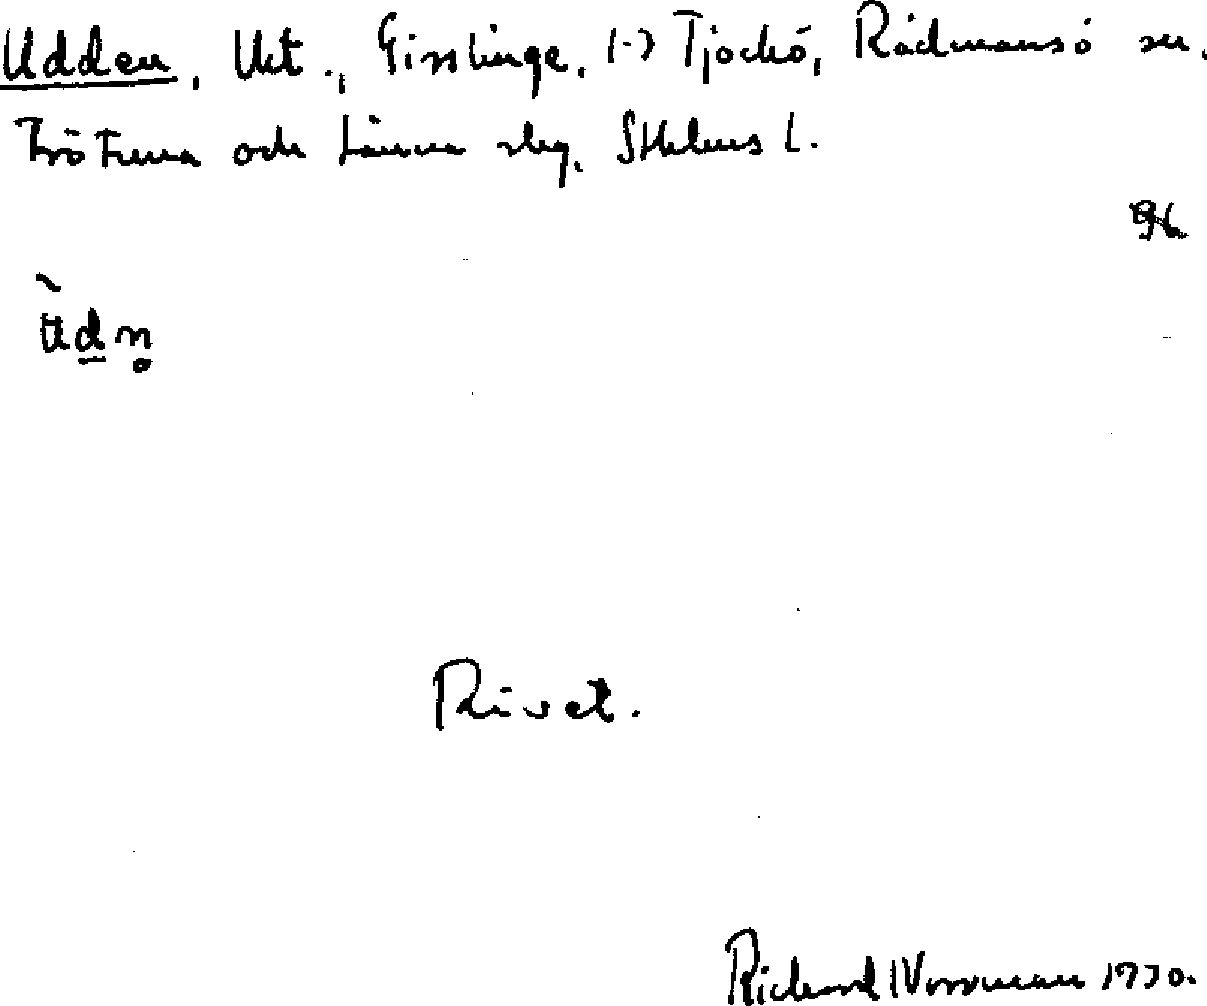 Udden, Ukt., Gisslinge, (-) Tjockö, Rådmansö sn.
Frötuna och Länna slg, Sthlms L.
96
ùdn̥
Rivet.
Richard Wossman 1930.